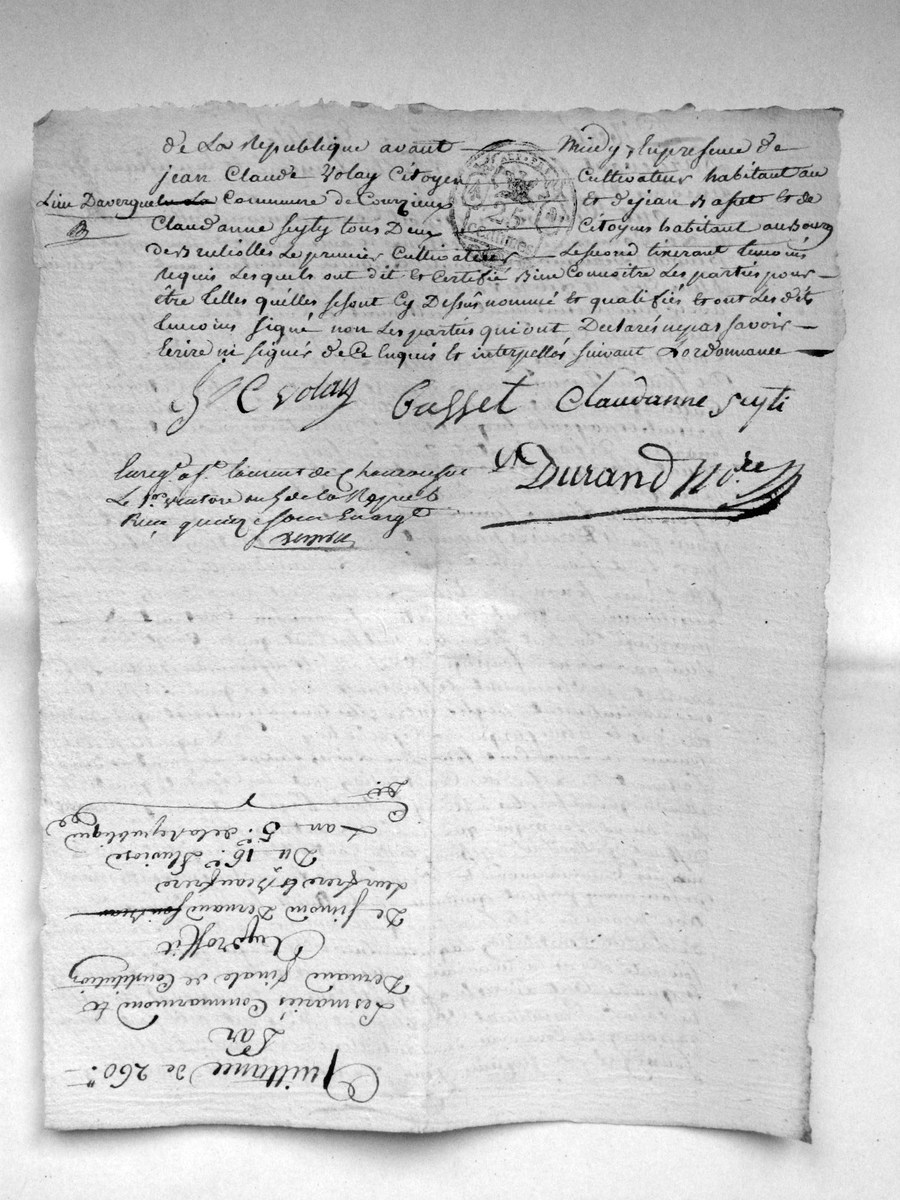 de La Republique avant Midy, En presence de
jean Claude Volay Citoyen Cultivateur habitant au
Lieu Davergue la Commune de Courzieux et de jean Basset et de
Claudanne Seyty tous Deux Citoyens habitant au Bourg
de Brulioles Le premier Cultivateur Le second tixerant temoins
Requis Lesquels ont dit et Certifié Bien Connoitre Les parties pour
être telles quelles se sont Cy Dessus nommé et qualifiés et ont Les dits
temoins signé non Les parties qui ont Declarés ne pas savoir
Ecrire ni signer de Ce Enquis et interpellés suivant L'ordonnance
J C Volay Basset Claudanne Seyti
Durand No.re
Enreg.é a S.t Laurent de Chamousset
Le 1.er ventose an 5 de la Repub
Reçu quinze sous En arg.t
Quittance de 260.
Par
Les mariés Commarmond et
Dernaud finale de Constitution
Au proffit
De simond Dernaud
Leur frere et Beaufrere
Du 16.e Pluviose
L'an 5.e de la Republique